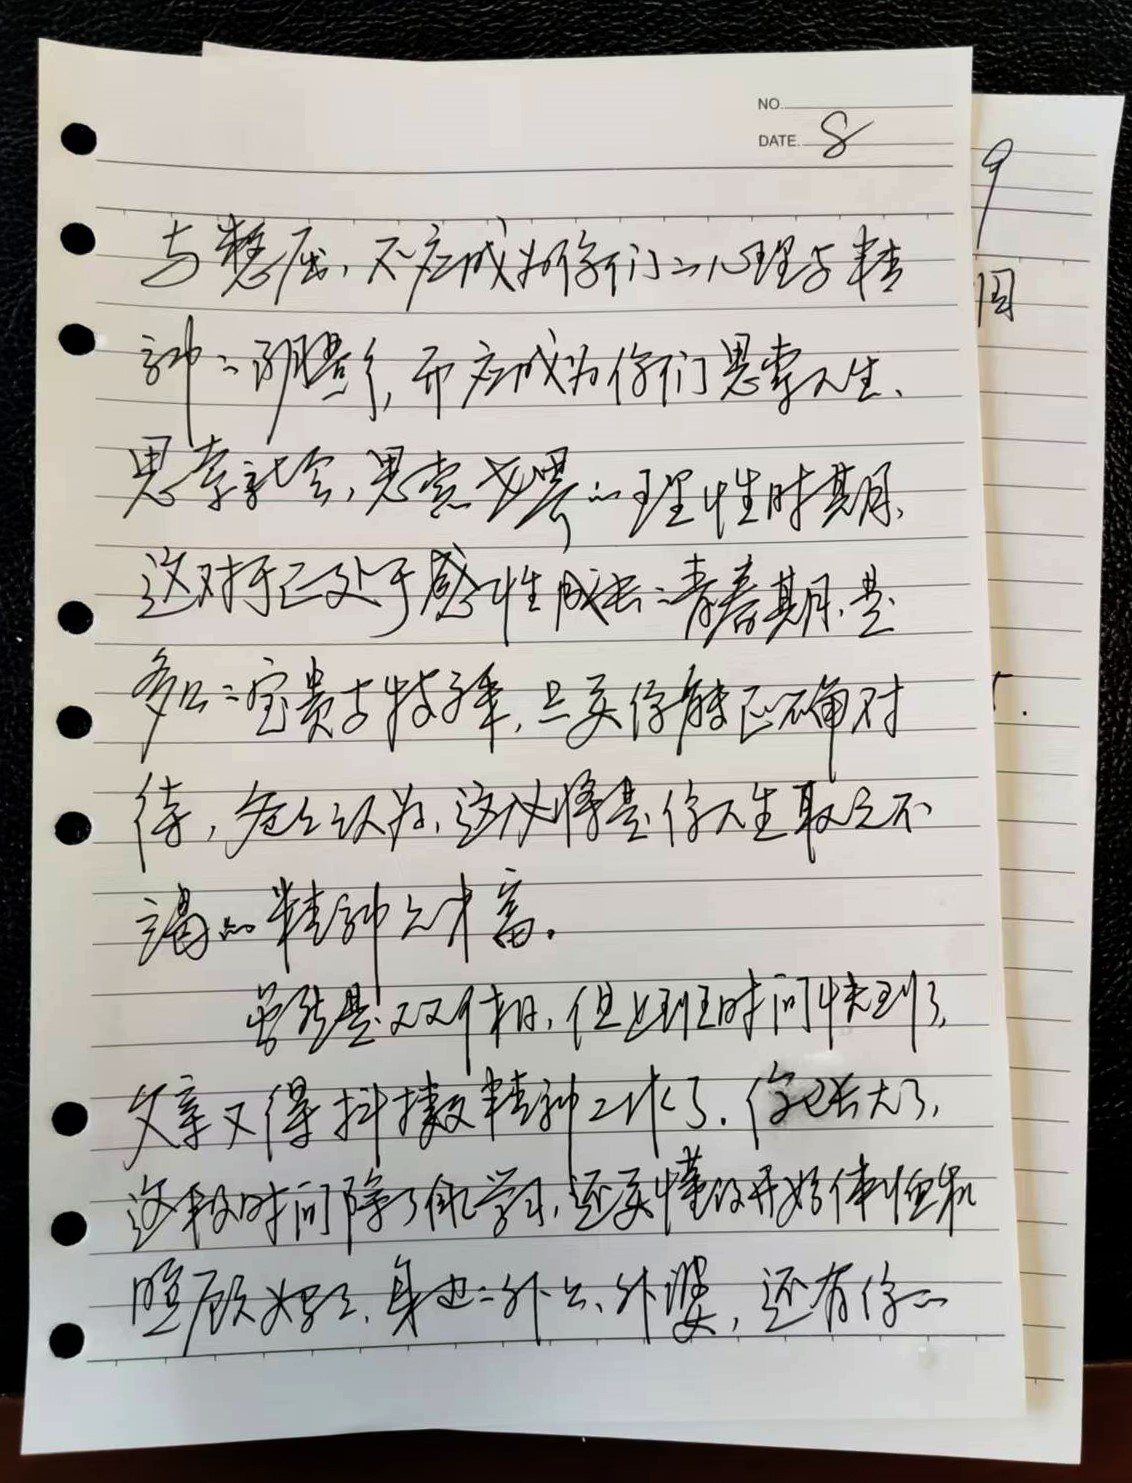 NO.
DATE. 8
与憋屈，不应成为你们的心理与精
神的阴影，而应成为你们思索人生、
思索社会，思索世界的理性时期，
这对于已处于感性成长的青春期，是
多么的宝贵与特殊，只要你能正确对
待，爸爸认为，这必将是你人生取之不
竭的精神财富。
虽然是双休日，但上班时间快到了，
父亲又得抖擞精神工作了．你已长大了，
这段时间除了做学习，还要懂得开始体恤和
照顾好身边的外公、外婆，还有你的
9
因